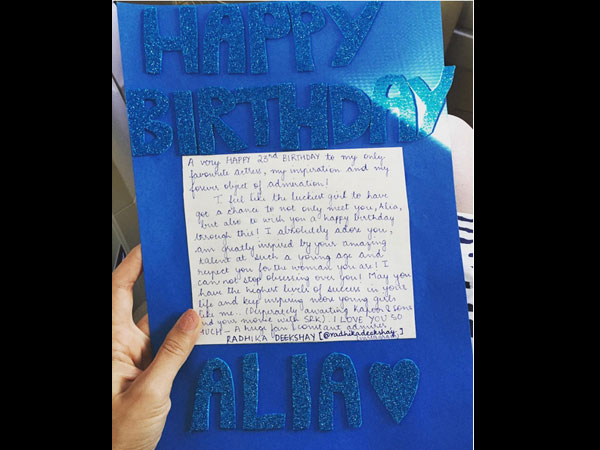 HAPPY
BIRTHDAY
A very HAPPY 23rd BIRTHDAY to my only
favourite actress, my inspiration and my
forever object of admiration!
I feel like the luckiest girl to have
got a chance to not only meet you, Alia,
but also to wish you a happy birthday
through this! I absolutely adore you,
am greatly inspired by your amazing
talent at such a young age and
respect you for the woman you are! I
can not stop obsessing over you! May you
have the highest levels of success in your
life and keep inspiring more young girls
like me... (Desperately awaiting Kapoor & Sons
and your movie with SRK). I LOVE YOU SO
MUCH - A huge fan & constant admirer
RADHIKA DEEKSHAY [@radhikadeekshay-]
ALIA